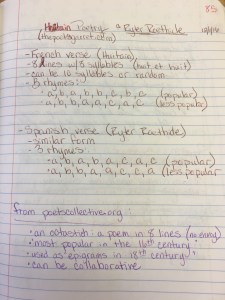 85
Huitain Poetry & Ryter Roethide
(thepoetsgarret.com)
-French verse (Huitain)
-8 lines w/ 8 syllables (huit et huit)
-can be 10 syllables or random
-3 rhymes:
·a, b, a, b, b, c, b, c (popular)
·a, b, b, a, a, c, a, c (less popular)
-Spanish verse (Ryter Roethide)
-similar form
-3 rhymes:
·a, b, a, b, b, a, c, a, c (popular)
·a, b, b, a, a, c, c, a (less popular
from poetscollective.org:
·an octostich: a poem in 8 lines (no envoy)
·most popular in the 16th century
·used as epigrams in 18th century
·can be collaborative